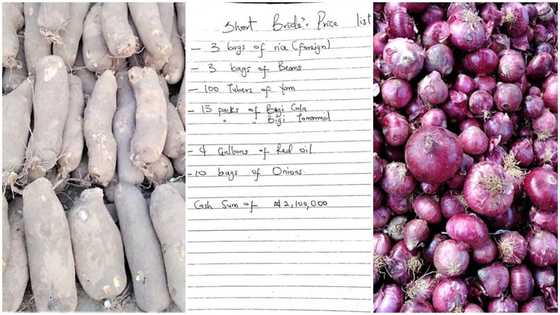 Short Bride's Price list
- 3 bags of rice (foreign)
- 3 bags of Beans
- 100 Tubers of Yam
- 15 packs of Bigi Cola
" " Bigi
- 4 Gallons of Red oil
- 10 bags of Onions
Cash Sum of ₦2,100,000